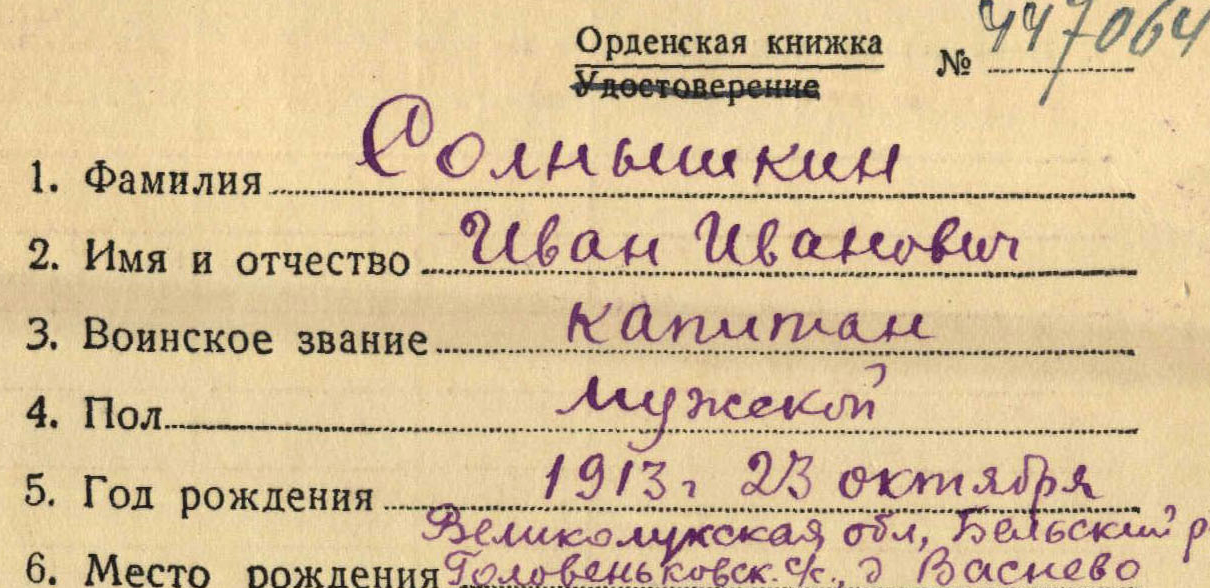 Орденская книжка
Удостоверение
№ 447064
1. Фамилия Солнышкин
2. Имя и отчество Иван Иванович
3. Воинское звание капитан
4. Пол мужской
5. Год рождения 1913 г 23 октября
Великолукская обл, Бельский р
6. Место рождения Головеньковск. с/с., д Васнево